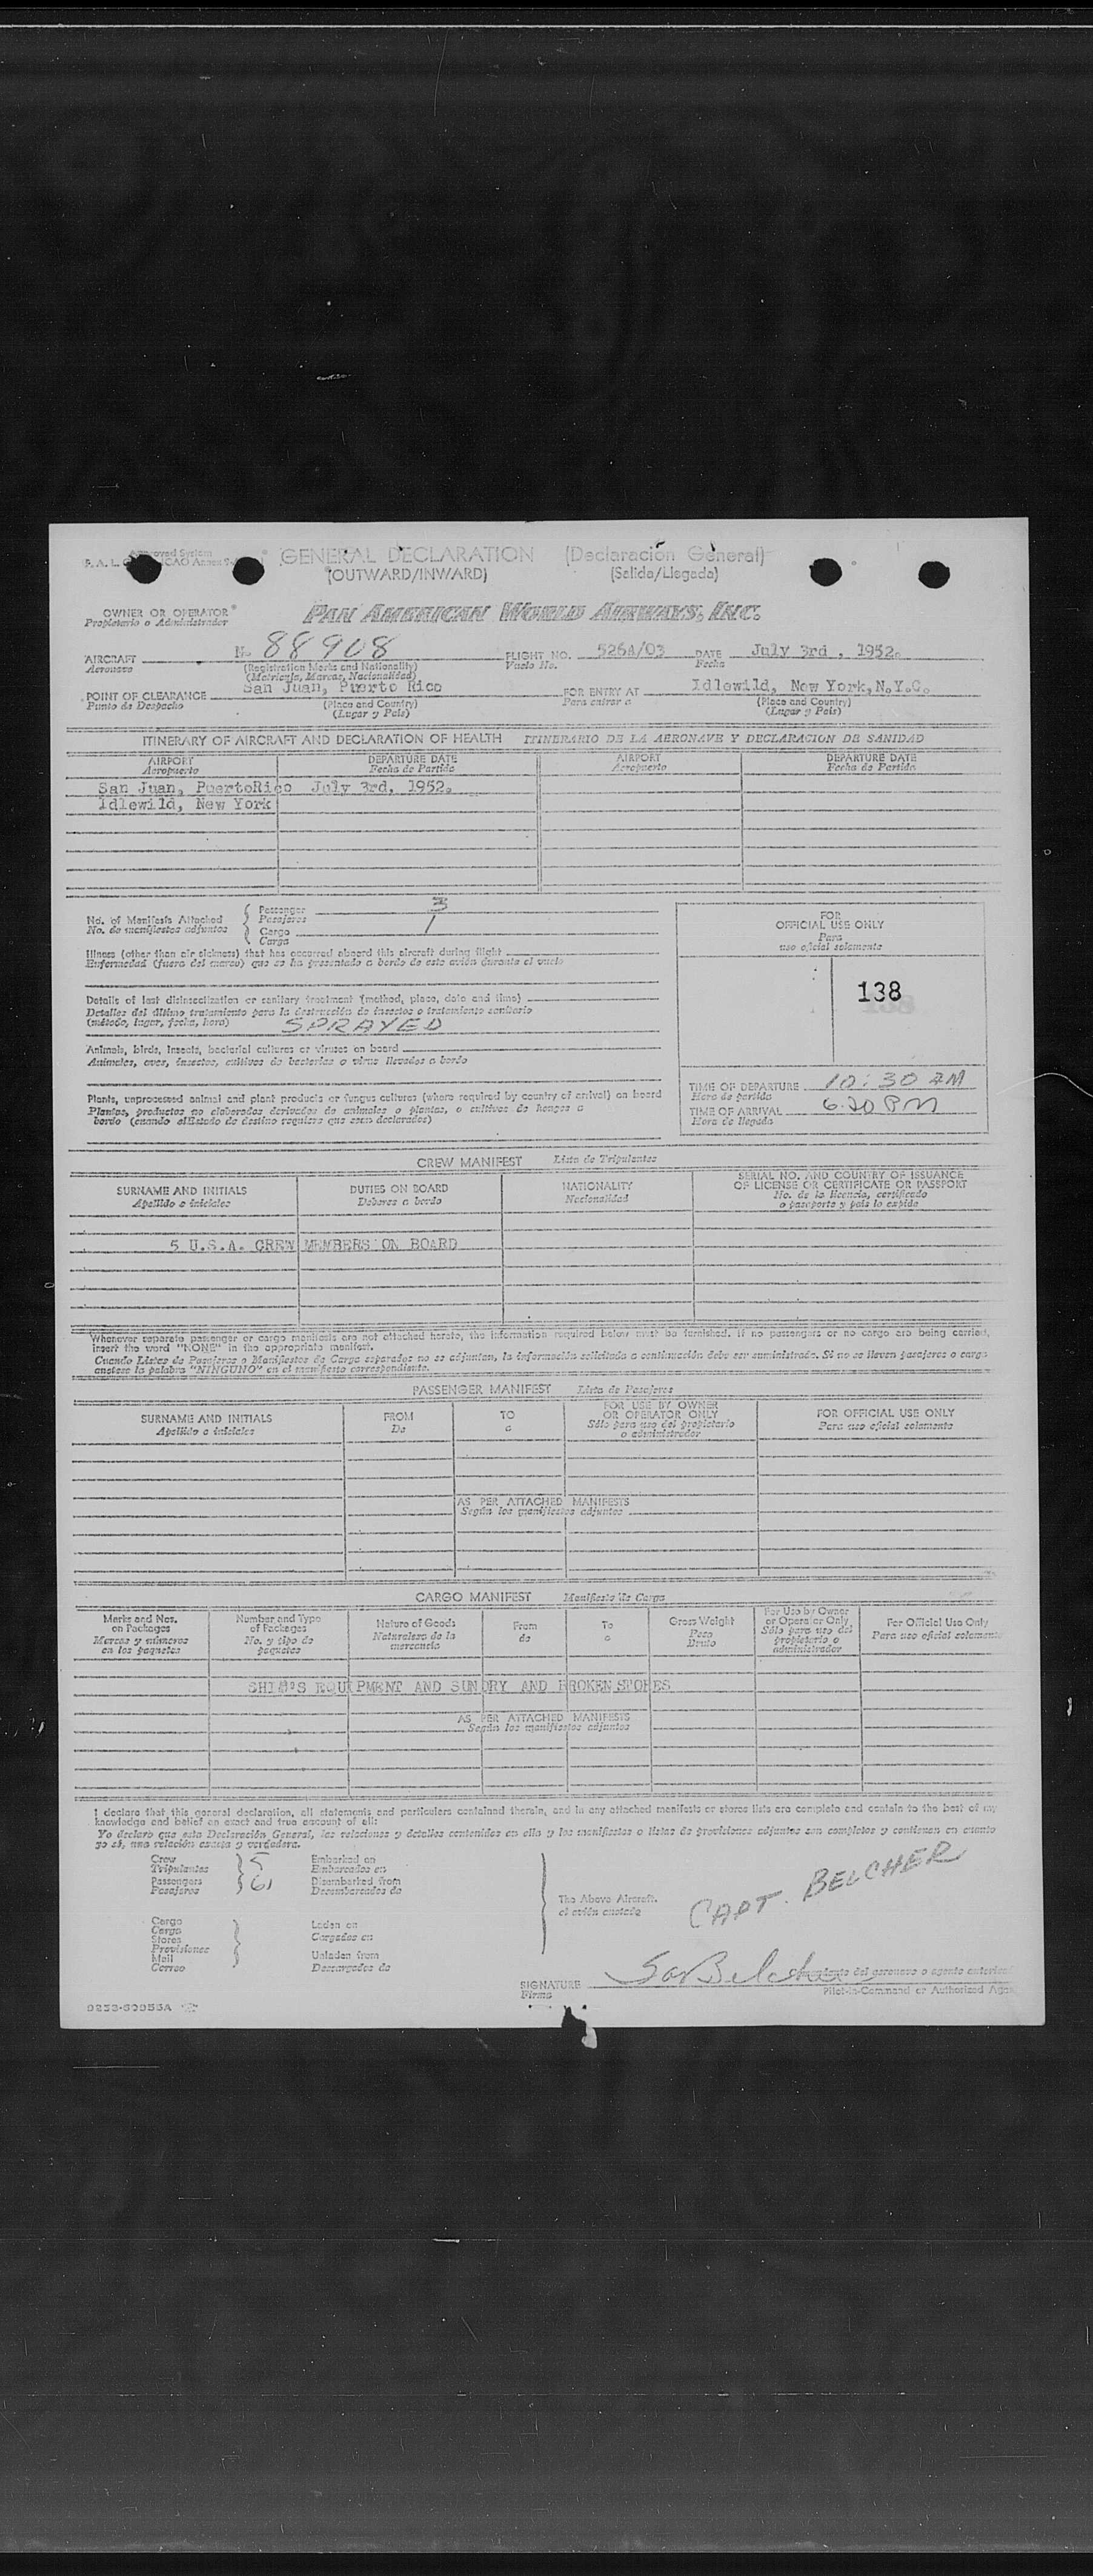 Approved System
GENERAL DECLARATION (Declaración General)
(OUTWARD/INWARD) (Salida/Llegada)
OWNER OR OPERATOR PAN AMERICAN WORLD AIRWAYS, INC.
Propietario o Administrador
AIRCRAFT N. 88908 FLIGHT NO. 526A/03 DATE July 3rd, 1952.
Aeronave (Registration Marks and Nationality) Vuelo No. Fecha
(Matricula, Marcas, Nacionalidad)
POINT OF CLEARANCE San Juan, Puerto Rico FOR ENTRY AT Idlewild, New York, N.Y.C.
Punto de Despacho (Place and Country) Para entrar a (Place and Country)
(Lugar y País) (Lugar y País)
ITINERARY OF AIRCRAFT AND DECLARATION OF HEALTH ITINERARIO DE LA AERONAVE Y DECLARACION DE SANIDAD
AIRPORT DEPARTURE DATE AIRPORT DEPARTURE DATE
Aeropuerto Fecha de Partida Aeropuerto Fecha de Partida
San Juan, PuertoRico July 3rd, 1952.
Idlewild, New York
No. of Manifests Attached Passenger 3
No. de manifiestos adjuntos Pasajeros
Cargo 1
Carga
Illness (other than air sickness) that has occurred aboard this aircraft during flight
Enfermedad (fuera del mareo) que se ha presentado a bordo de este avión durante el vuelo
Details of last disinsectization or sanitary treatment (method, place, date and time)
Detalles del último tratamiento para la destrucción de insectos o tratamiento sanitario
(método, lugar, fecha, hora) SPRAYED
Animals, birds, insects, bacterial cultures or viruses on board
Animales, aves, insectos, cultivos de bacterias o virus llevados a bordo
Plants, unprocessed animal and plant products or fungus cultures (where required by country of arrival) on board
Plantas, productos no elaborados derivados de animales o plantas, o cultivos de hongos a
bordo (cuando elEstado de destino requiera que sean declarados)
FOR
OFFICIAL USE ONLY
Para
uso oficial solamente
138
TIME OF DEPARTURE 10:30 AM
Hora de partida
TIME OF ARRIVAL 6:20 PM
Hora de llegada
CREW MANIFEST Lista de Tripulantes
SURNAME AND INITIALS DUTIES ON BOARD NATIONALITY SERIAL NO. AND COUNTRY OF ISSUANCE
OF LICENSE OR CERTIFICATE OR PASSPORT
Apellido e iniciales Deberes a bordo Nacionalidad No. de la licencia, certificado
o pasaporte y país lo expide
5 U.S.A. CREW MEMBERS ON BOARD
Whenever separate passenger or cargo manifests are not attached hereto, the information required below must be furnished. If no passengers or no cargo are being carried,
insert the word "NONE" in the appropriate manifest.
Cuando Listas de Pasajeros o Manifiestos de Carga separados no se adjuntan, la información solicitada a continuación debe ser suministrada. Si no se lleven pasajeros o carga
anótese la palabra "NINGUNO" en el manifiesto correspondiente.
PASSENGER MANIFEST Lista de Pasajeros
SURNAME AND INITIALS FROM TO FOR USE BY OWNER
OR OPERATOR ONLY FOR OFFICIAL USE ONLY
Apellido e iniciales De a Sólo para uso del propietario
o administrador Para uso oficial solamente
AS PER ATTACHED MANIFESTS
Según los manifiestos adjuntos
CARGO MANIFEST Manifiesto de Carga
Marks and Nos.
on Packages
Marcas y números
en los paquetes
Number and Type
of Packages
No. y tipo de
paquetes
Nature of Goods
Naturaleza de la
mercancía
From
de
To
a
Gross Weight
Peso
Bruto
For Use by Owner
or Operator Only
Sólo para uso del
propietario o
administrador
For Official Use Only
Para uso oficial solamente
SHIP'S EQUIPMENT AND SUNDRY AND BROKEN STORES
AS PER ATTACHED MANIFESTS
Según los manifiestos adjuntos
I declare that this general declaration, all statements and particulars contained therein, and in any attached manifests or stores lists are complete and contain to the best of my
knowledge and belief an exact and true account of all:
Yo declaro que esta Declaración General, las relaciones y detalles contenidos en ella y los manifiestos o listas de provisiones adjuntos son completos y contienen en cuanto
yo sé, una relación exacta y verdadera.
Crew 5 Embarked on
Tripulantes Embarcados en
Passengers 61 Disembarked from
Pasajeros Desembarcados de
The Above Aircraft.
el avión anotado
CAPT. BELCHER
Cargo
Carga
Stores
Provisiones
Mail
Correo
Laden on
Cargados en
Unladen from
Descargados de
SIGNATURE
Firma
Pilot-in-Command or Authorized Agent